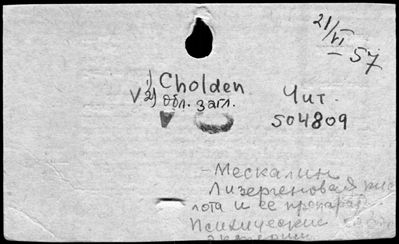 21/VI
57
1) Cholden
V 2) Обл. загл.
Чит.
504809
- Мескалин
Лизергеновая кис
лота и ее препарат
Психические